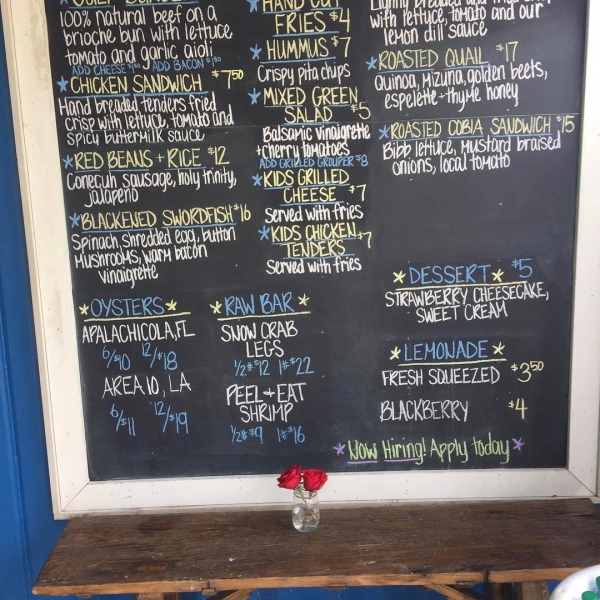 100% natural beef on a
brioche bun with lettuce
tomato and garlic aioli
ADD CHEESE $1.00 ADD BACON $1.50
*CHICKEN SANDWICH $7.50
Hand breaded tenders fried
crisp with lettuce, tomato and
spicy buttermilk sauce
*RED BEANS + RICE $12
Conecuh sausage, holy trinity,
jalapeño
*BLACKENED SWORDFISH $16
Spinach, shredded egg, button
mushrooms, warm bacon
vinaigrette
*OYSTERS*
APALACHICOLA, FL
6/$10 12/$18
AREA 10, LA
6/$11 12/$19
HAND CUT
FRIES $4
*HUMMUS $7
Crispy pita chips
*MIXED GREEN
SALAD $5
Balsamic vinaigrette
+ cherry tomatoes
ADD GRILLED GROUPER $8
*KIDS GRILLED
CHEESE $7
Served with fries
*KIDS CHICKEN
TENDERS $7
Served with fries
*RAW BAR*
SNOW CRAB
LEGS
1/2# $12 1# $22
PEEL + EAT
SHRIMP
1/2# $9 1# $16
Lightly breaded and fried
with lettuce, tomato and our
lemon dill sauce
*ROASTED QUAIL $17
Quinoa, mizuna, golden beets,
espelette + thyme honey
*ROASTED COBIA SANDWICH $15
Bibb lettuce, mustard braised
onions, local tomato
*DESSERT* $5
STRAWBERRY CHEESECAKE,
SWEET CREAM
*LEMONADE*
FRESH SQUEEZED $3.50
BLACKBERRY $4
*Now Hiring! Apply today*